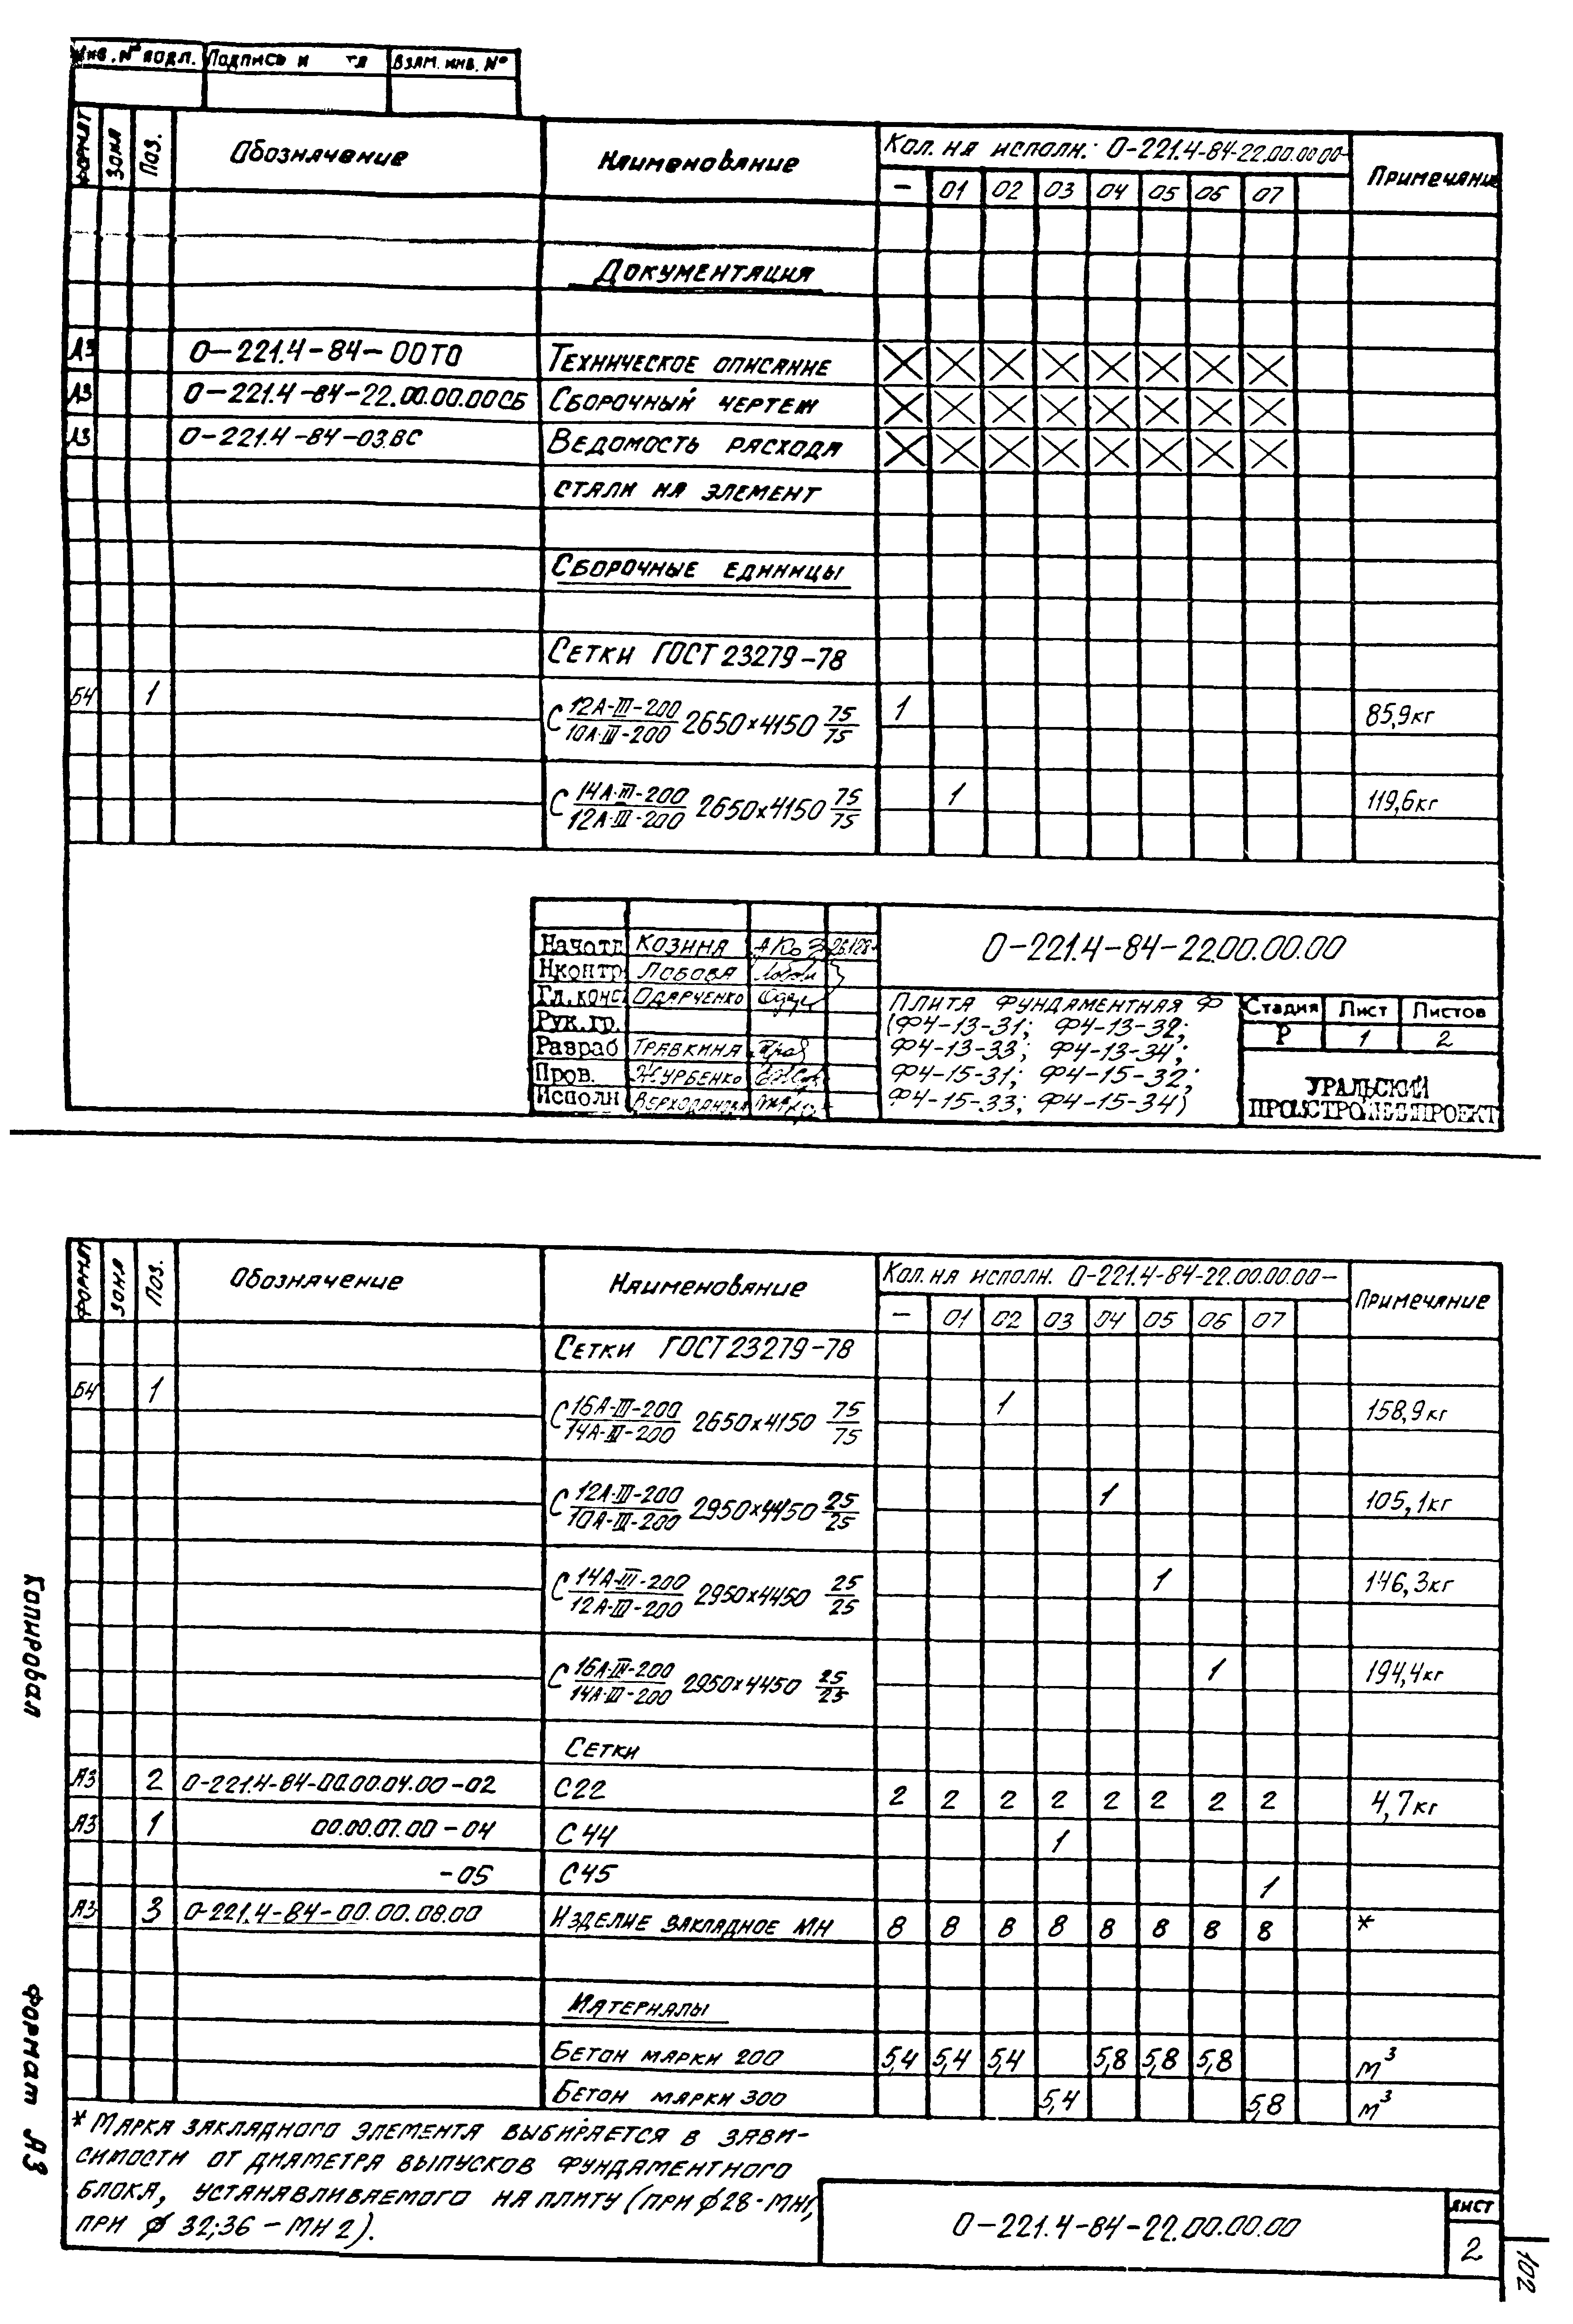 Инв. № подл. Подпись и Взам. инв. №
Формат Зона Поз. Обозначение Наименование Кол. на исполн.: 0-221.4-84-22.00.00.00- Примечание
— 01 02 03 04 05 06 07
Документация
А3 0-221.4-84-00ТО Техническое описание X X X X X X X X
А3 0-221.4-84-22.00.00.00СБ Сборочный чертеж X X X X X X X X
А3 0-221.4-84-03.ВС Ведомость расхода X X X X X X X X
стали на элемент
Сборочные единицы
Сетки ГОСТ 23279-78
Б4 1 С 12А-III-200/10А-III-200 2650×4150 75/75 1 85,9кг
С 14А-III-200/12А-III-200 2650×4150 75/75 1 119,6кг
Нач отд Козина
Н контр Лобова
Гл. конс Одарченко
Рук. гр.
Разраб Травкина
Пров. Журбенко
Исполн
0-221.4-84-22.00.00.00
Плита фундаментная Ф
(Ф4-13-31; Ф4-13-32;
Ф4-13-33; Ф4-13-34;
Ф4-15-31; Ф4-15-32;
Ф4-15-33; Ф4-15-34)
Стадия Лист Листов
Р 1 2
УРАЛЬСКИЙ
ПРОМСТРОЙНИИПРОЕКТ
Формат Зона Поз. Обозначение Наименование Кол. на исполн. 0-221.4-84-22.00.00.00— Примечание
— 01 02 03 04 05 06 07
Сетки ГОСТ 23279-78
Б4 1 С 16А-III-200/14А-III-200 2650×4150 75/75 1 158,9кг
С 12А-III-200/10А-III-200 2950×4450 25/25 1 105,1кг
С 14А-III-200/12А-III-200 2950×4450 25/25 1 146,3кг
С 16А-III-200/14А-III-200 2950×4450 25/25 1 194,4кг
Сетки
А3 2 0-221.4-84-00.00.04.00-02 С22 2 2 2 2 2 2 2 2 4,7кг
А3 1 00.00.07.00-04 С44 1
-05 С45 1
А3 3 0-221.4-84-00.00.08.00 Изделие закладное МН 8 8 8 8 8 8 8 8 *
Материалы
Бетон марки 200 5,4 5,4 5,4 5,8 5,8 5,8 м³
Бетон марки 300 5,4 5,8 м³
* Марка закладного элемента выбирается в зави-
симости от диаметра выпусков фундаментного
блока, устанавливаемого на плиту (при ⌀28-МН1,
при ⌀ 32;36 — МН 2).
0-221.4-84-22.00.00.00
Лист
2
Копировал
Формат А3
102